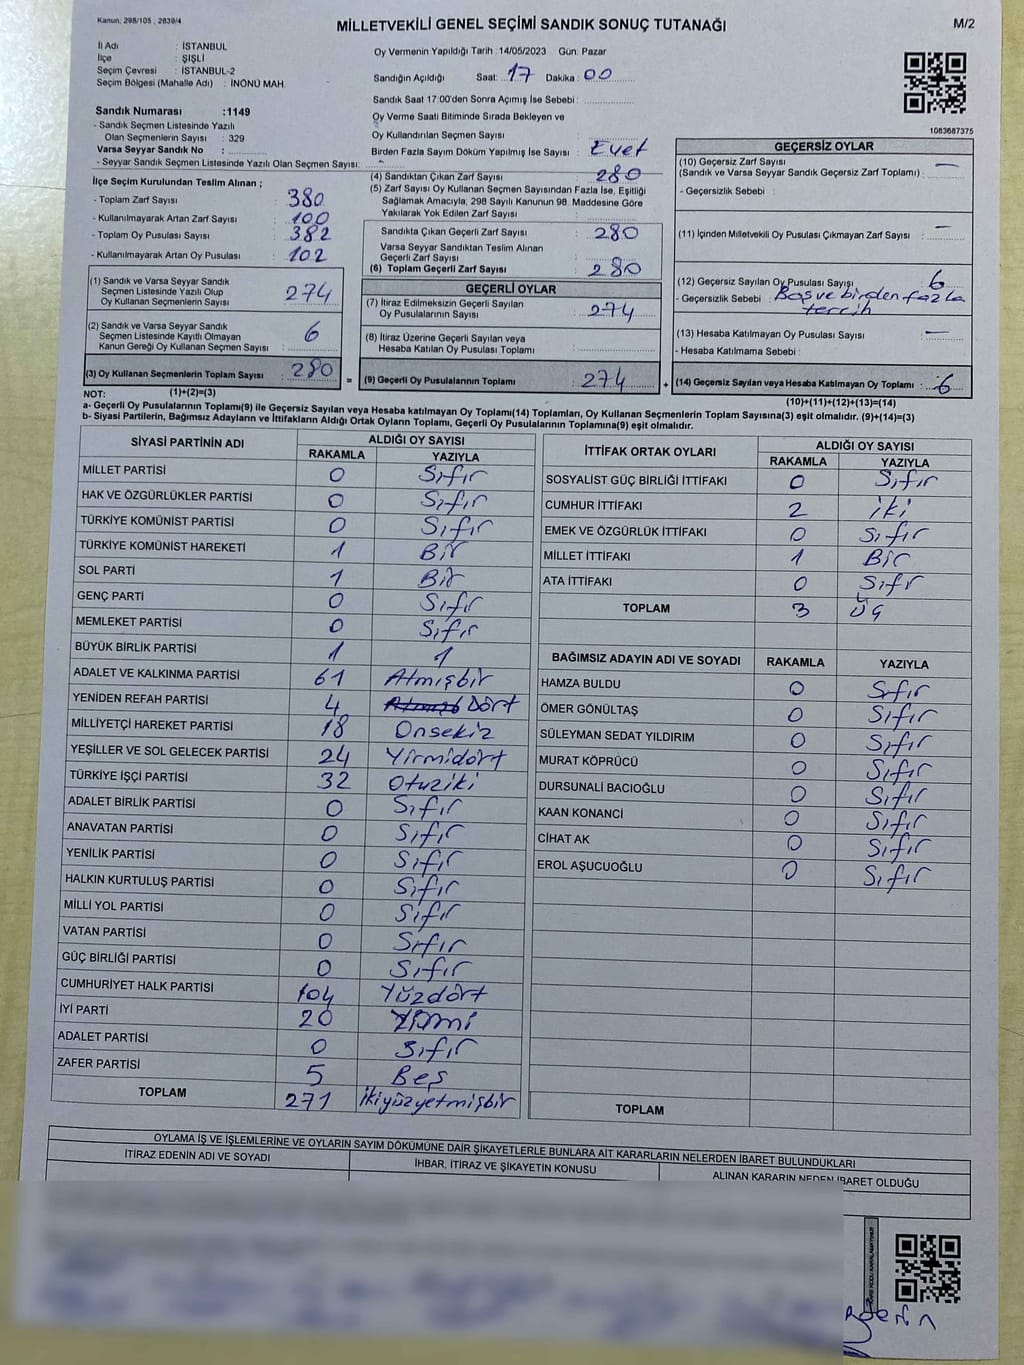 Kanun; 298/105 , 2839/4
MİLLETVEKİLİ GENEL SEÇİMİ SANDIK SONUÇ TUTANAĞI
M/2
İl Adı : İSTANBUL
İlçe : ŞİŞLİ
Seçim Çevresi : İSTANBUL-2
Seçim Bölgesi (Mahalle Adı) : İNÖNÜ MAH.
Oy Vermenin Yapıldığı Tarih : 14/05/2023 Gün: Pazar
Sandığın Açıldığı Saat: 17 Dakika : 00
Sandık Saat 17:00'den Sonra Açımış İse Sebebi :
Oy Verme Saati Bitiminde Sırada Bekleyen ve
Oy Kullandırılan Seçmen Sayısı :
Birden Fazla Sayım Döküm Yapılmış İse Sayısı : Evet
1083687375
Sandık Numarası : 1149
- Sandık Seçmen Listesinde Yazılı
Olan Seçmenlerin Sayısı : 329
Varsa Seyyar Sandık No :
- Seyyar Sandık Seçmen Listesinde Yazılı Olan Seçmen Sayısı:
İlçe Seçim Kurulundan Teslim Alınan ;
- Toplam Zarf Sayısı : 380
- Kullanılmayarak Artan Zarf Sayısı : 100
- Toplam Oy Pusulası Sayısı : 382
- Kullanılmayarak Artan Oy Pusulası : 102
(1) Sandık ve Varsa Seyyar Sandık
Seçmen Listesinde Yazılı Olup
Oy Kullanan Seçmenlerin Sayısı : 274
(2) Sandık ve Varsa Seyyar Sandık
Seçmen Listesinde Kayıtlı Olmayan
Kanun Gereği Oy Kullanan Seçmen Sayısı : 6
(3) Oy Kullanan Seçmenlerin Toplam Sayısı : 280
(1)+(2)=(3)
(4) Sandıktan Çıkan Zarf Sayısı : 280
(5) Zarf Sayısı Oy Kullanan Seçmen Sayısından Fazla İse, Eşitliği
Sağlamak Amacıyla, 298 Sayılı Kanunun 98. Maddesine Göre
Yakılarak Yok Edilen Zarf Sayısı :
Sandıkta Çıkan Geçerli Zarf Sayısı : 280
Varsa Seyyar Sandıktan Teslim Alınan
Geçerli Zarf Sayısı :
(6) Toplam Geçerli Zarf Sayısı : 280
GEÇERLİ OYLAR
(7) İtiraz Edilmeksizin Geçerli Sayılan
Oy Pusulalarının Sayısı : 274
(8) İtiraz Üzerine Geçerli Sayılan veya
Hesaba Katılan Oy Pusulası Toplamı :
= (9) Geçerli Oy Pusulalarının Toplamı : 274 +
GEÇERSİZ OYLAR
(10) Geçersiz Zarf Sayısı
(Sandık ve Varsa Seyyar Sandık Geçersiz Zarf Toplamı) : —
- Geçersizlik Sebebi :
(11) İçinden Milletvekili Oy Pusulası Çıkmayan Zarf Sayısı : —
(12) Geçersiz Sayılan Oy Pusulası Sayısı : 6
- Geçersizlik Sebebi : Boş ve birden fazla
tercih
(13) Hesaba Katılmayan Oy Pusulası Sayısı : —
- Hesaba Katılmama Sebebi :
(14) Geçersiz Sayılan veya Hesaba Katılmayan Oy Toplamı : 6
(10)+(11)+(12)+(13)=(14)
NOT:
a- Geçerli Oy Pusulalarının Toplamı(9) ile Geçersiz Sayılan veya Hesaba katılmayan Oy Toplamı(14) Toplamları, Oy Kullanan Seçmenlerin Toplam Sayısına(3) eşit olmalıdır. (9)+(14)=(3)
b- Siyasi Partilerin, Bağımsız Adayların ve İttifakların Aldığı Ortak Oyların Toplamı, Geçerli Oy Pusulalarının Toplamına(9) eşit olmalıdır.
SİYASİ PARTİNİN ADI ALDIĞI OY SAYISI
RAKAMLA YAZIYLA
MİLLET PARTİSİ 0 Sıfır
HAK VE ÖZGÜRLÜKLER PARTİSİ 0 Sıfır
TÜRKİYE KOMÜNİST PARTİSİ 0 Sıfır
TÜRKİYE KOMÜNİST HAREKETİ 1 Bir
SOL PARTİ 1 Bir
GENÇ PARTİ 0 Sıfır
MEMLEKET PARTİSİ 0 Sıfır
BÜYÜK BİRLİK PARTİSİ 1 1
ADALET VE KALKINMA PARTİSİ 61 Atmışbir
YENİDEN REFAH PARTİSİ 4 Dört
MİLLİYETÇİ HAREKET PARTİSİ 18 Onsekiz
YEŞİLLER VE SOL GELECEK PARTİSİ 24 Yirmidört
TÜRKİYE İŞÇİ PARTİSİ 32 Otuziki
ADALET BİRLİK PARTİSİ 0 Sıfır
ANAVATAN PARTİSİ 0 Sıfır
YENİLİK PARTİSİ 0 Sıfır
HALKIN KURTULUŞ PARTİSİ 0 Sıfır
MİLLİ YOL PARTİSİ 0 Sıfır
VATAN PARTİSİ 0 Sıfır
GÜÇ BİRLİĞİ PARTİSİ 0 Sıfır
CUMHURİYET HALK PARTİSİ 104 Yüzdört
İYİ PARTİ 20 Yirmi
ADALET PARTİSİ 0 Sıfır
ZAFER PARTİSİ 5 Beş
TOPLAM 271 İkiyüzyetmişbir
İTTİFAK ORTAK OYLARI ALDIĞI OY SAYISI
RAKAMLA YAZIYLA
SOSYALİST GÜÇ BİRLİĞİ İTTİFAKI 0 Sıfır
CUMHUR İTTİFAKI 2 iki
EMEK VE ÖZGÜRLÜK İTTİFAKI 0 Sıfır
MİLLET İTTİFAKI 1 Bir
ATA İTTİFAKI 0 Sıfır
TOPLAM 3 Üç
BAĞIMSIZ ADAYIN ADI VE SOYADI RAKAMLA YAZIYLA
HAMZA BULDU 0 Sıfır
ÖMER GÖNÜLTAŞ 0 Sıfır
SÜLEYMAN SEDAT YILDIRIM 0 Sıfır
MURAT KÖPRÜCÜ 0 Sıfır
DURSUNALİ BACIOĞLU 0 Sıfır
KAAN KONANCİ 0 Sıfır
CİHAT AK 0 Sıfır
EROL AŞUCUOĞLU 0 Sıfır
TOPLAM
OYLAMA İŞ VE İŞLEMLERİNE VE OYLARIN SAYIM DÖKÜMÜNE DAİR ŞİKAYETLERLE BUNLARA AİT KARARLARIN NELERDEN İBARET BULUNDUKLARI
İTİRAZ EDENİN ADI VE SOYADI İHBAR, İTİRAZ VE ŞİKAYETİN KONUSU ALINAN KARARIN NEDEN İBARET OLDUĞU